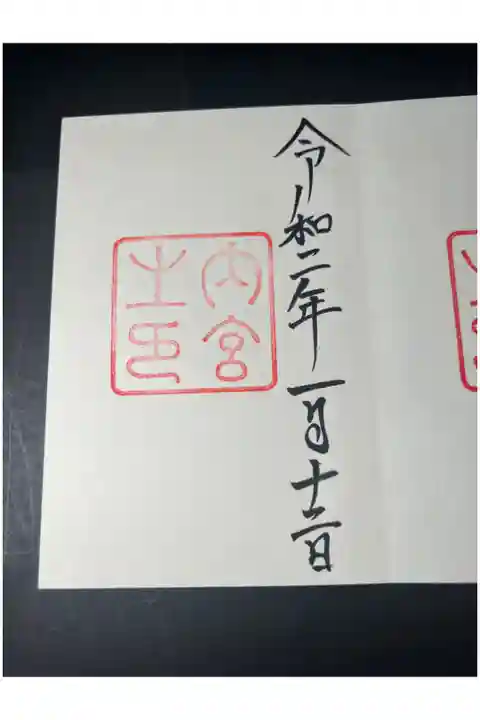 令和二年一月十二日
内宮
之印